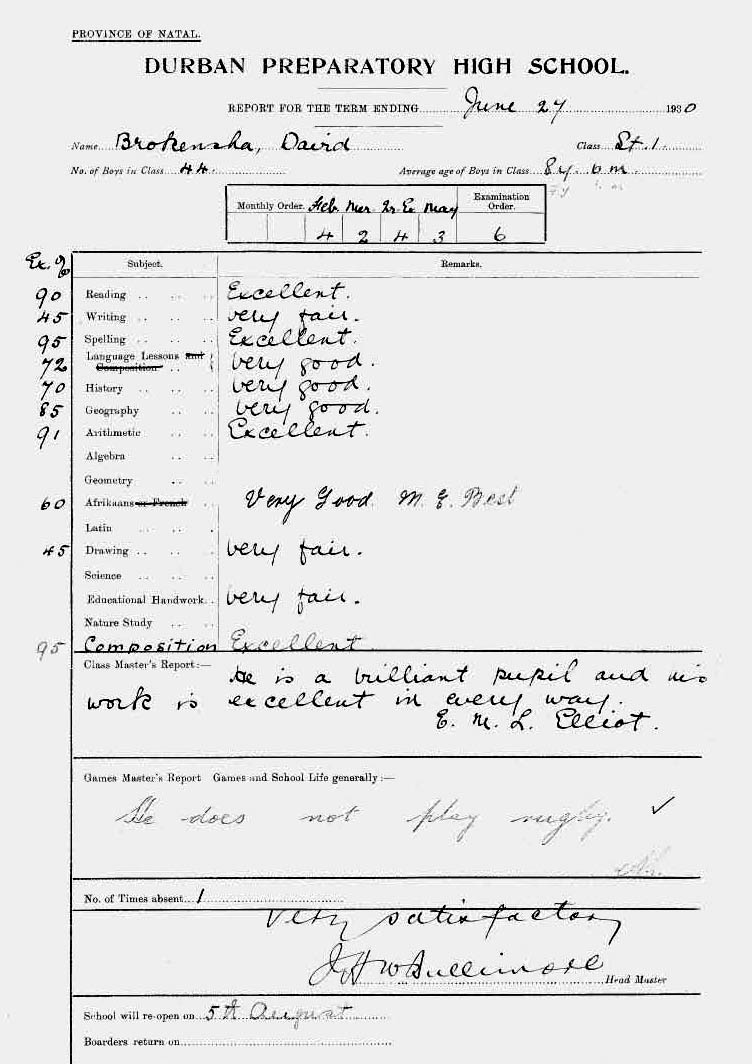 PROVINCE OF NATAL.
DURBAN PREPARATORY HIGH SCHOOL.
REPORT FOR THE TERM ENDING June 27 1930
Name Brokensha, David Class St. 1.
No. of Boys in Class 44. Average age of Boys in Class 8y. 6m
7y
Monthly Order. Feb. Mar. Qr. Ex. May Examination Order.
4 2 4 3 6
Ex. % Subject. Remarks.
90 Reading Excellent.
45 Writing very fair.
95 Spelling Excellent.
72 Language Lessons and Composition very good.
70 History very good.
85 Geography very good.
91 Arithmetic Excellent.
Algebra
Geometry
60 Afrikaans or French Very Good M. E. Best
Latin
45 Drawing very fair.
Science
Educational Handwork very fair.
Nature Study
95 Composition Excellent
Class Master's Report:— He is a brilliant pupil and his
work is excellent in every way.
E. M. L. Elliot.
Games Master's Report Games and School Life generally:—
He does not play rugby. ✓
No. of Times absent 1
Very satisfactory
J H W Bullimore Head Master
School will re-open on 5th August
Boarders return on